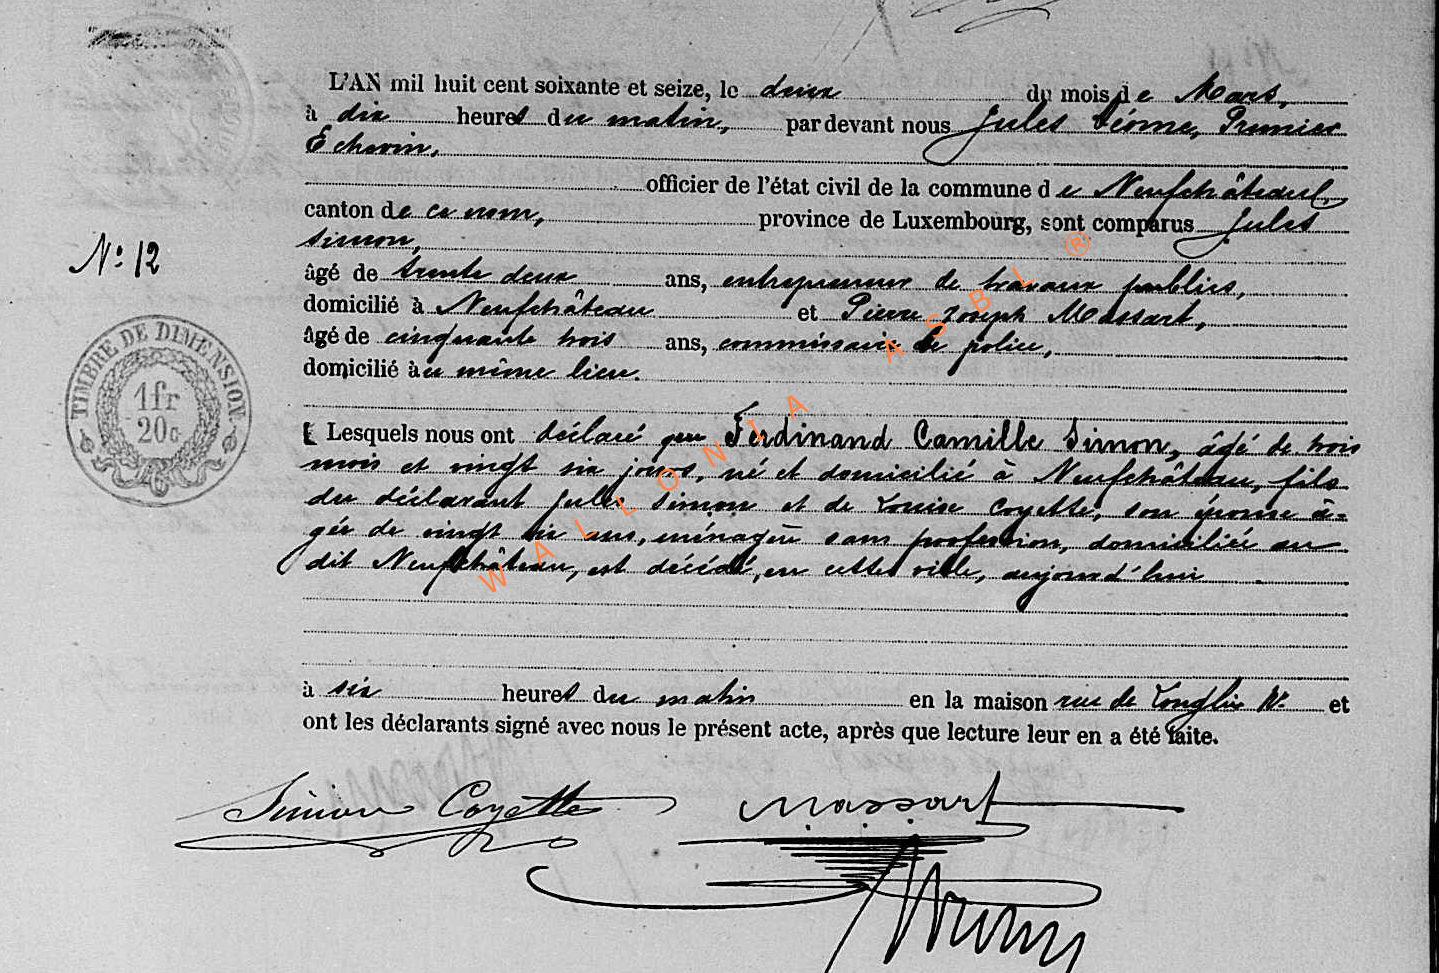 L'AN mil huit cent soixante et seize, le deux du mois de Mars,
à dix heures du matin, par devant nous Jules Premier
Echevin,
officier de l'état civil de la commune de Neufchâteau,
canton de ce nom, province de Luxembourg, sont comparus Jules
Simon,
N° 12
âgé de trente deux ans, entrepreneur de travaux publics,
domicilié à Neufchâteau et Pierre Joseph Massart,
âgé de cinquante trois ans, commissaire de police,
domicilié au même lieu.
TIMBRE DE DIMENSION
1fr
20c
Lesquels nous ont déclaré que Ferdinand Camille Simon, âgé de trois
mois et vingt six jours, né et domicilié à Neufchâteau, fils
du déclarant Jules Simon et de Louise Coyette, son épouse â-
gée de vingt six ans, ménagère sans profession, domiciliée au
dit Neufchâteau, est décédé, en cette ville, aujourd'hui
à six heures du matin en la maison rue de Longlier N° et
ont les déclarants signé avec nous le présent acte, après que lecture leur en a été faite.
Simon Coyette Massart
WALLONIA ASBL ®